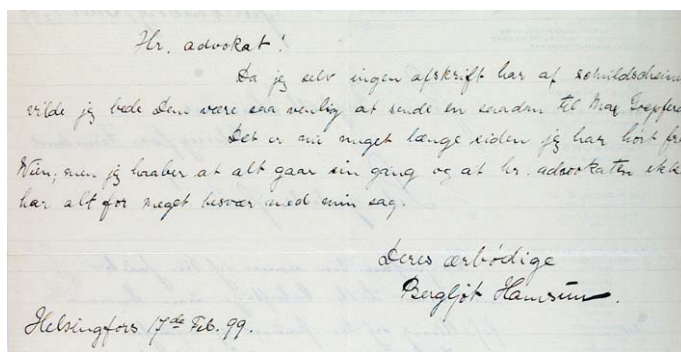 Hr. advokat!
Da jeg selv ingen afskrift har af schuldscheine
vilde jeg bede Dem være saa venlig at sende en saadan til Max
Det er nu meget længe siden jeg har hørt fra
Wien; men jeg haaber at alt gaar sin gang og at hr. advokaten ikk
har alt for meget besvær med min sag.
Deres ærbödige
Bergljot Hamsun.
Helsingfors 17de Feb. 99.